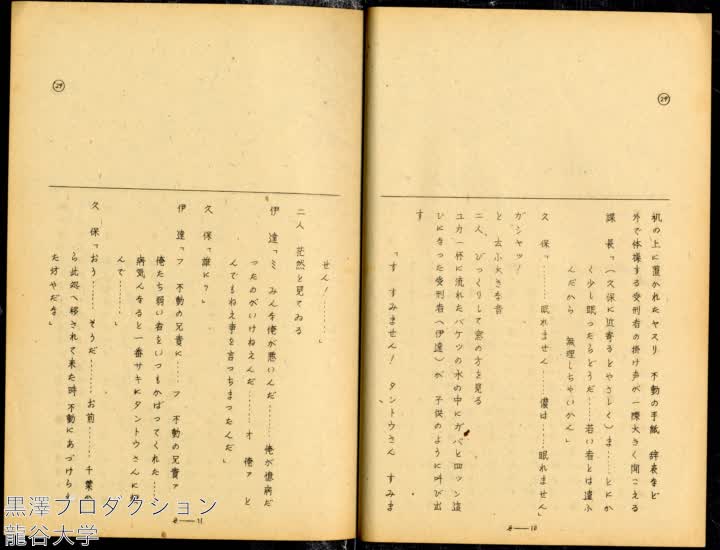 29
机の上に置かれたヤスリ 不動の手紙 辞表など
外で体操する受刑者の掛け声が一際大きく聞こえる
課 長「(久保に近寄るとやさしく)ま……とにか
く少し眠ったらどうだ……若い者とは違ふ
んだから 無理しちゃいかん」
久 保「……眠れません……儂は……眠れません」
ガシャッ!
と 太ふ大きな音
二人 びっくりして窓の方を見る
ユカ一杯に流れたバケツの水の中にガバと四ッン這
ひになった受刑者(伊達)が 子供のように叫び出
す
「す すみません! タントウさん すみま
2―10
29
せん!……」
二人 茫然と見てゐる
伊 達「ミ みんな俺が悪いんだ……俺が臆病だ
ったのがいけねえんだ……オ 俺ァ と
んでもねえ事を言っちまったんだ」
久 保「誰に?」
伊 達「フ 不動の兄貴に……フ 不動の兄貴ァ
俺たち弱い者をいつもかばってくれた……
病気んなると一番サキにタントウさんに
んで……」
久 保「おう……そうだ……お前……千葉か
ら此処へ移されて来た時 不動にあづけら
た奴やだな」
2―11
黒澤プロダクション
龍谷大学